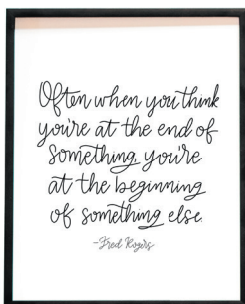 Often when you think
you're at the end of
something, you're
at the beginning
of something else
-Fred Rogers